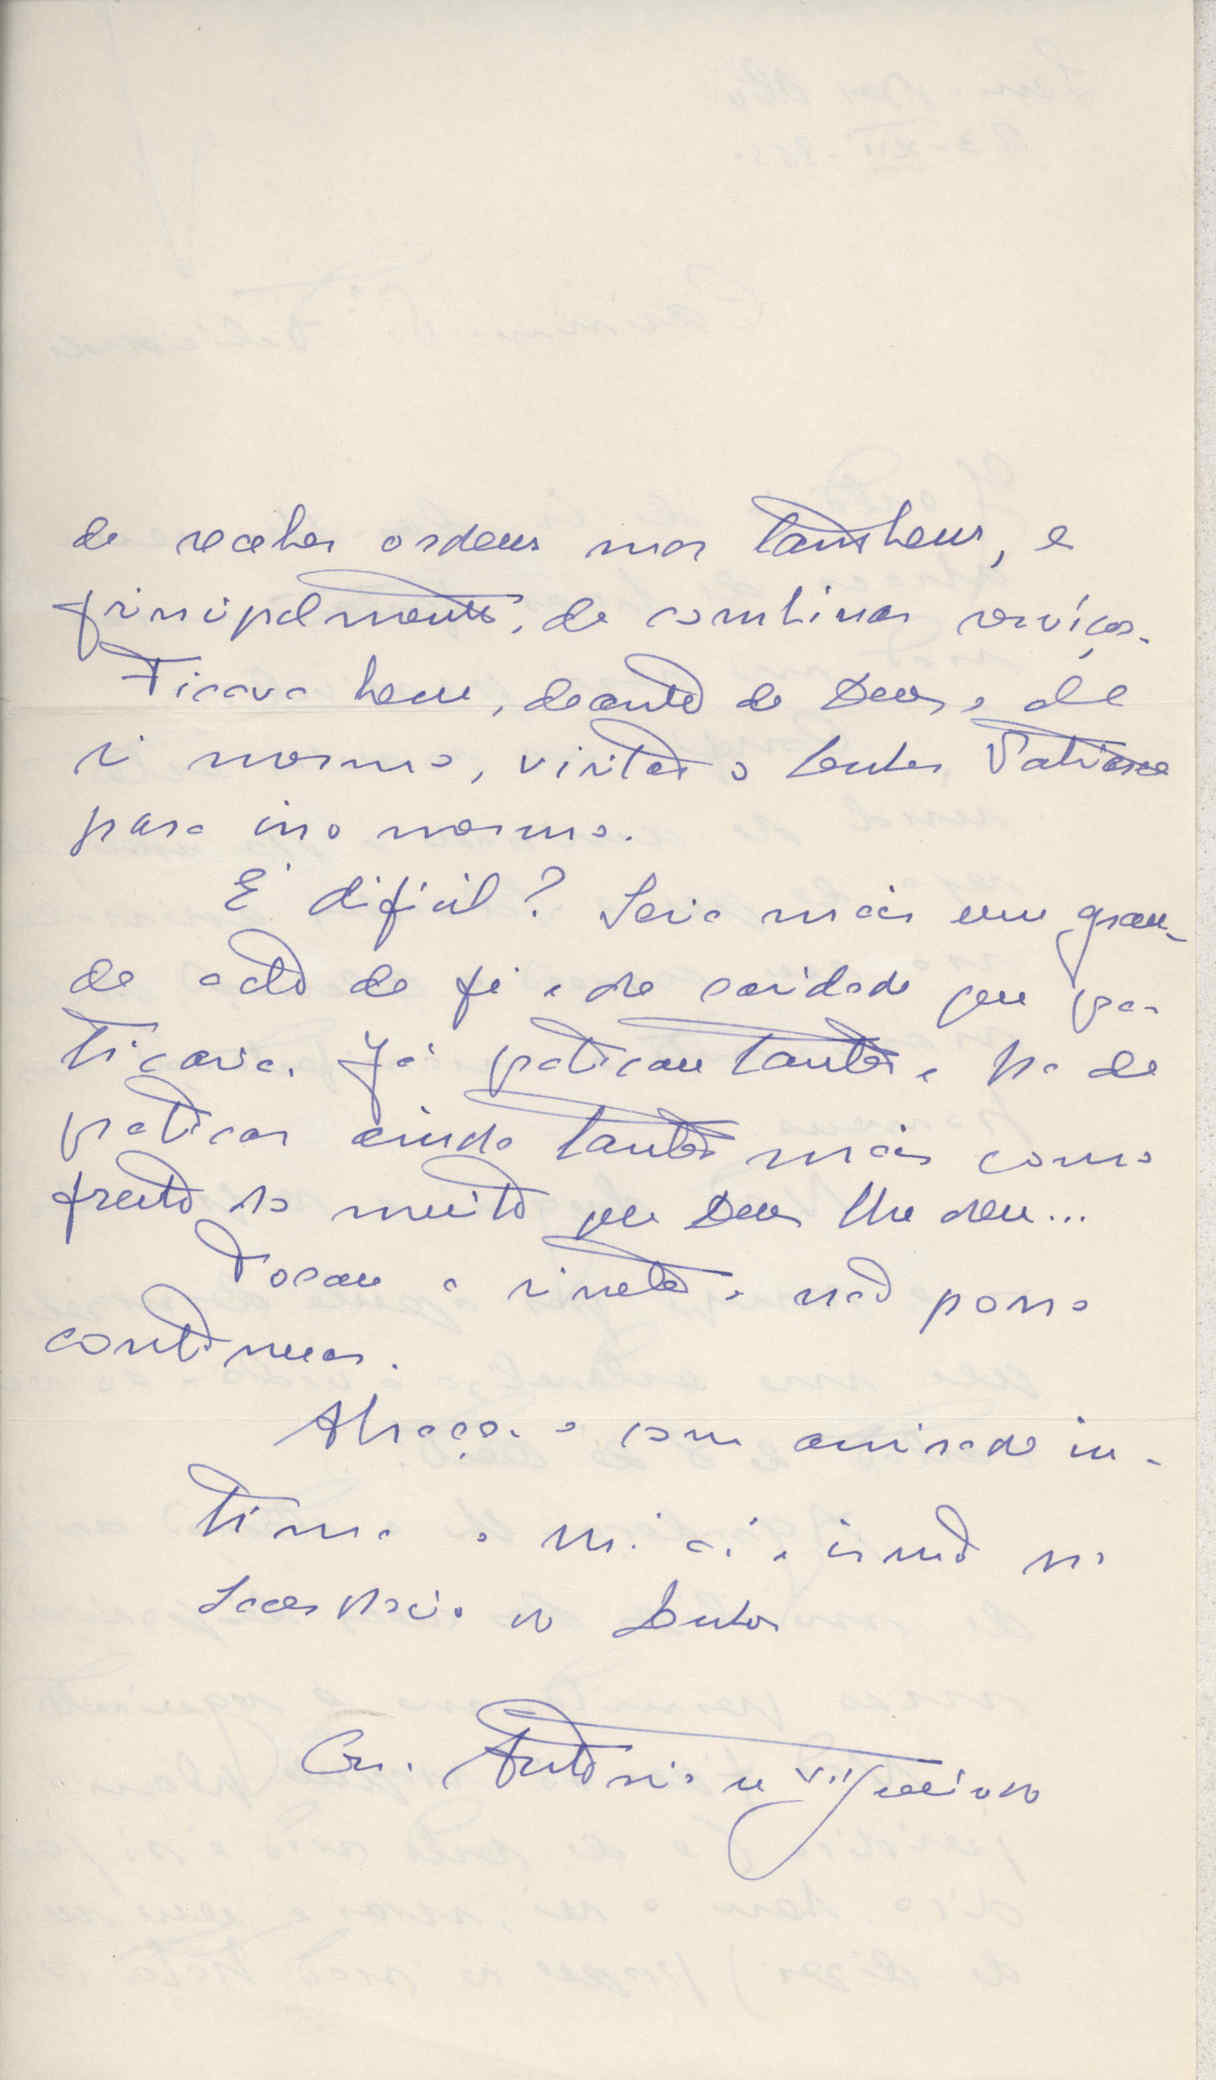 de receber ordens mas tambem, e
principalmente, de combinar serviços.
Ficava bem, deante de Deus e de
si mesmo, visitar o Senhor Patriarca
para isso mesmo.
E' dificil? Seria mais um gran-
de acto de fé e de caridade que pra-
ticaria. Já praticou tantos e ha de
praticar ainda tantos mais como
fruto do muito que Deus lhe deu...
Tocou a sineta e não posso
continuar.
Abraça-o com amisade in-
tima o m. irmão no
Sacerdocio do Senhor
Con. Antonio